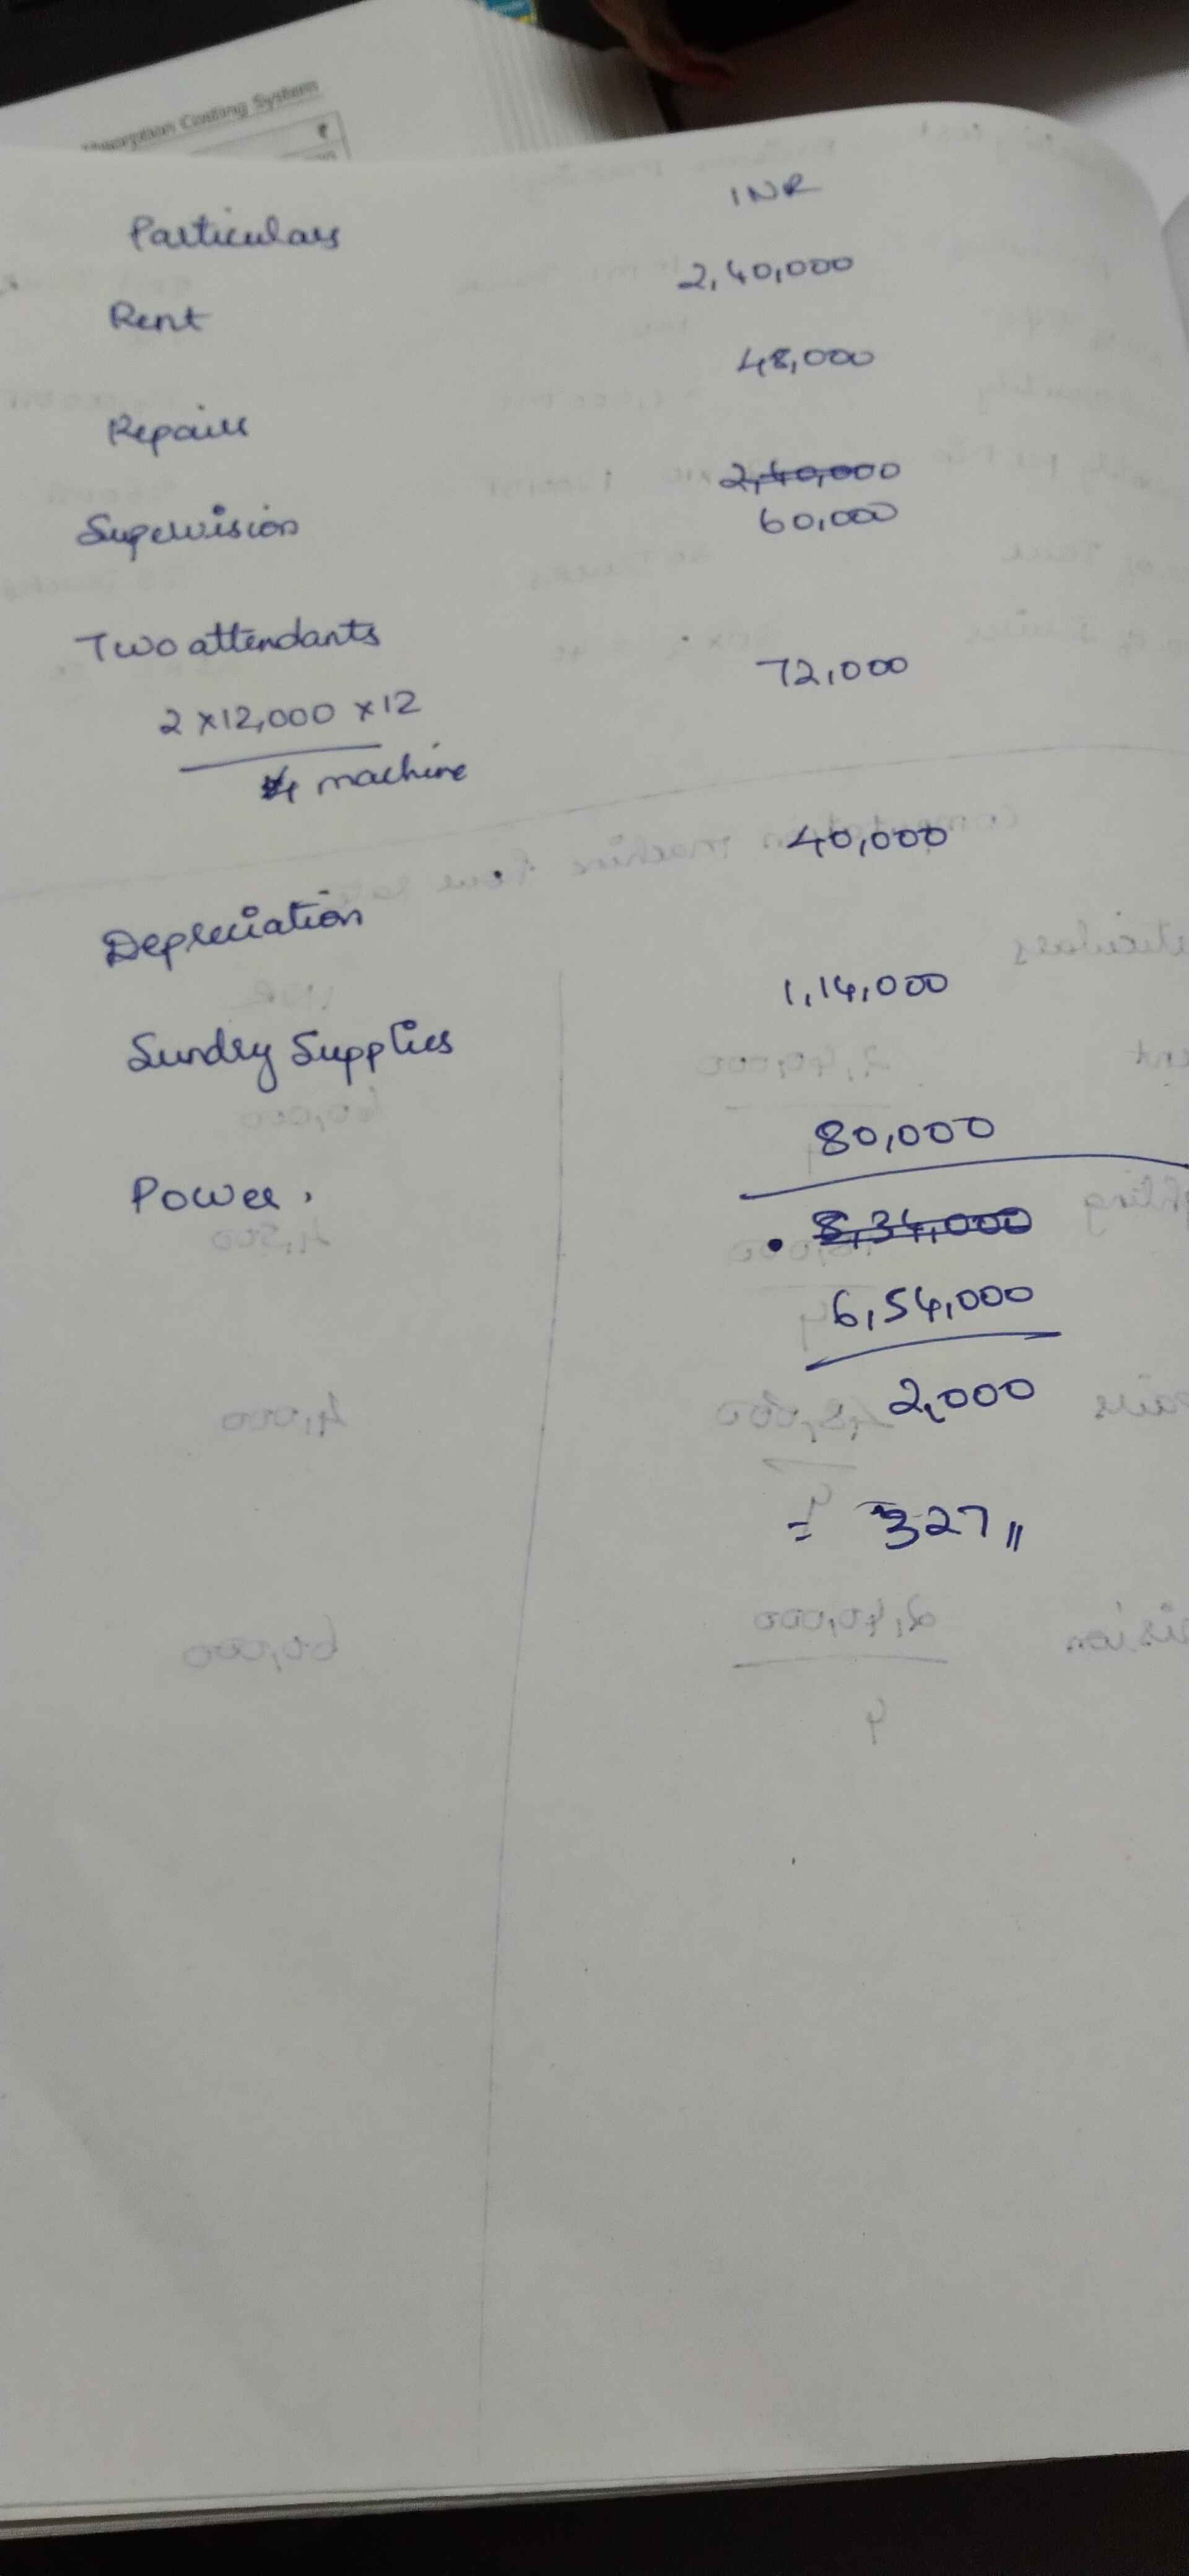 Absorption Costing System
₹
Particulars INR
Rent 2,40,000
Repairs 48,000
2,40,000
Supervision 60,000
Two attendants
2 x 12,000 x 12 72,000
4 machine
Depreciation 40,000
Sundry Supplies 1,14,000
Power. 80,000
8,34,000
6,54,000
2,000
= 327 "